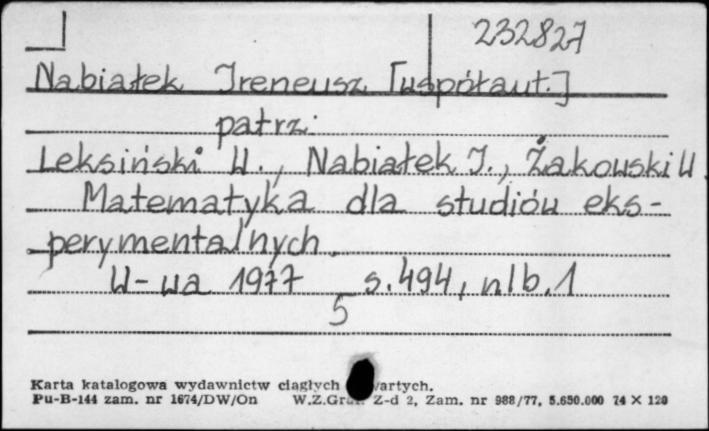 232827
Nabiałek Ireneusz [współaut.]
patrz:
Leksiński W., Nabiałek J., Żakowski W.
Matematyka dla studiów eks-
perymentalnych.
W-wa 1977 s. 494, nlb. 1
5
Karta katalogowa wydawnictw ciągłych wartych.
Pu-B-144 zam. nr 1674/DW/On W.Z.Graf. Z-d 2, Zam. nr 988/77, 5.650.000 74 × 120